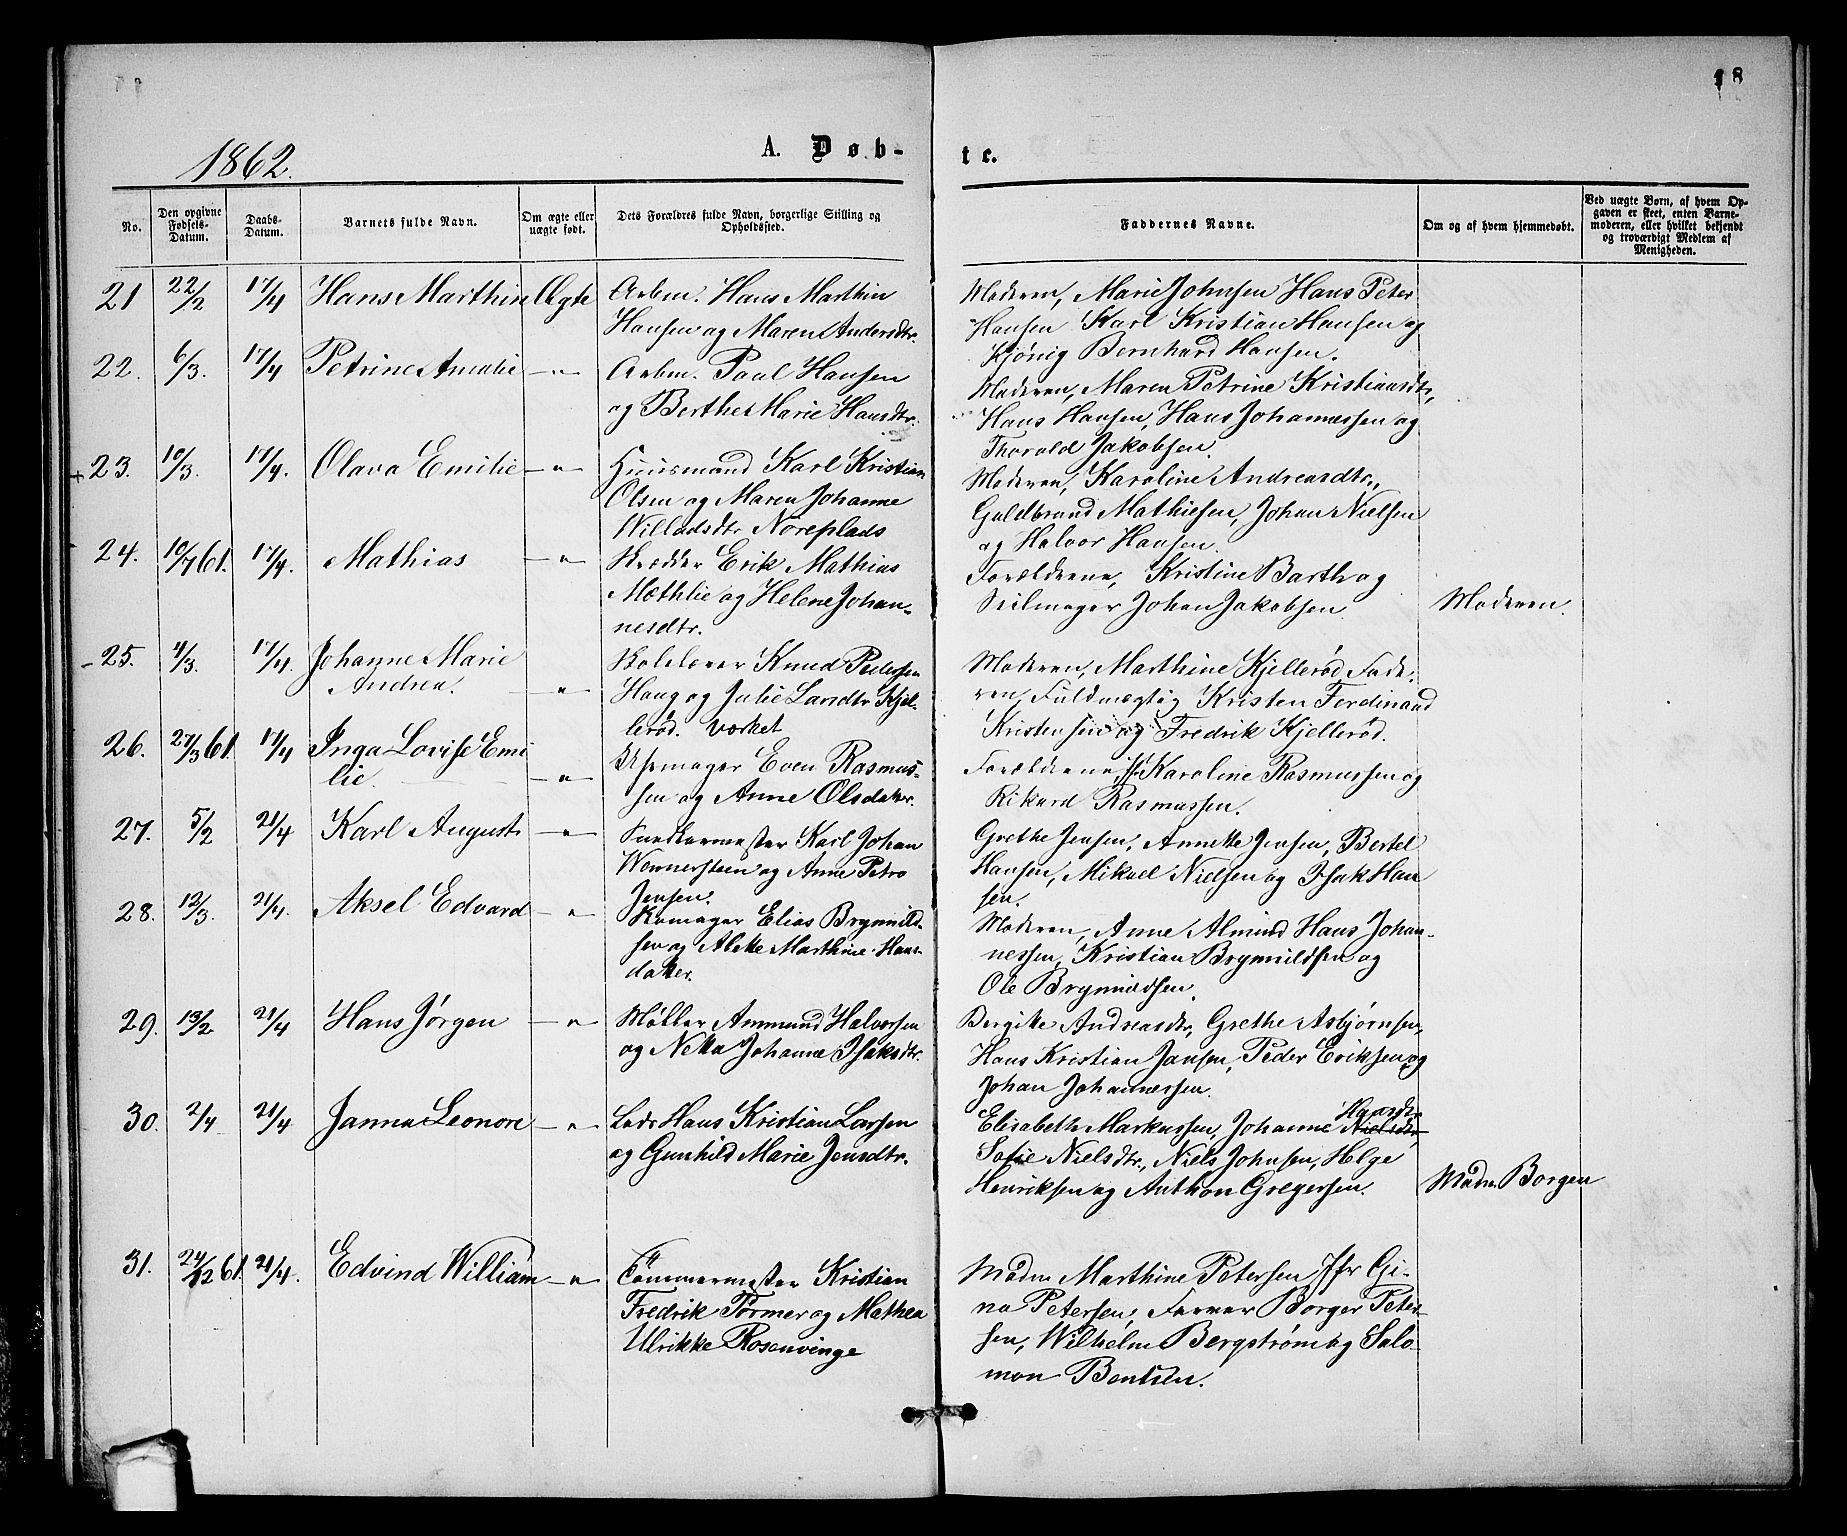 18
1862.
A. Døb-
te.
No.
Den opgivne Fødsels-Datum.
Daabs-Datum.
Barnets fulde Navn.
Om ægte eller uægte født.
Dets Forældres fulde Navn, borgerlige Stilling og Opholdssted.
Faddernes Navne.
Om og af hvem hjemmedøbt.
Ved uægte Børn, af hvem Opgaven er skeet, enten Barnemoderen, eller hvilket bekjendt og troværdigt Medlem af Menigheden.
21 22/2 17/4 Hans Marthin Ægte Arbm. Hans Marthin
Hansen og Maren Andersdtr.
Moderen, Marie Johnsen Hans Peter
Hansen Karl Kristian Hansen og
Kjönig Bernhard Hansen.
22. 6/3. 17/4 Petrine Amalie —"— Arbm. Paul Hansen
og Berthe Marie Hansdtr.
Moderen, Maren Petrine Kristiansdtr,
Hans Hansen, Hans Johannessen og
Thorvald Jakobsen.
23. 10/3. 17/4. Olava Emilie —"— Huusmand Karl Kristian
Olsen og Maren Johanne
Willadsdtr Noreplads
Moderen, Karoline Andreasdtr,
Guldbrand Mathiesen, Johan Nielsen
og Halvor Hansen.
24. 10/7 61. 17/4. Mathias —"— Skrædder Erik Mathias
Mæthlie og Helene Johan-
nesdtr.
Forældrene, Kristine Barth og
Seilmager Johan Jakobsen
Moderen.
25. 4/3. 17/4. Johanne Marie
Andrea. —"—
Skolelærer Knud Pedersen
Haug og Julie Larsdtr Kjel-
lerød. Værket
Moderen, Marthine Kjellerød Fade-
ren, Fuldmægtig Kristen Ferdinand
Kristensen og Fredrik Kjellerød.
26. 27/3 61. 17/4 Inga Lovise Emi
lie. —"—
Uhrmager Even Rasmus-
sen og Anne Olsdatter.
Forældrene, Karoline Rasmussen og
Rikard Rasmussen.
27. 5/2 21/4 Karl August —"— Karl Johan
Wennersteen og Anne Petra
Jensen.
Grethe Jensen, Annette Jensen, Bertel
Hansen, Mikael Nielsen og Isak Han
sen.
28. 12/3. 21/4. Aksel Edvard —"— Skomager Elias Brynnild-
sen og Alette Marthine Hans-
datter.
Moderen, Anne Almind Hans Johan-
nessen, Kristian Brynnildsen og
Ole Brynnildsen.
29. 13/2 21/4 Hans Jørgen —"— Møller Ammund Halvorsen
og Netta Johanne Isaksdtr.
Bergitte Andreasdtr, Grethe Asbjørnsen,
Hans Kristian Jansen, Peder Eriksen og
Johan Johannessen.
30. 2/4 21/4 Janna Leonore —"— Lods Hans Kristian Larsen
og Gunhild Marie Jensdtr.
Hansdtr
Elisabeth Markussen, Johanne Nielsdtr,
Sofie Nielsdtr., Niels Johnsen, Helge
Henriksen og Anthon Gregersen.
Madm Borgen
31. 24/12 61. 21/4. Edvind William —"— Tömmermester Kristian
Fredrik Tormer og Mathea
Ulrikke Rosenvinge
Madm Marthine Petersen Jfr Gi-
na Petersen, Farver Borger Peter-
sen, Wilhelm Bergstrøm og Salo
mon Bentsen.